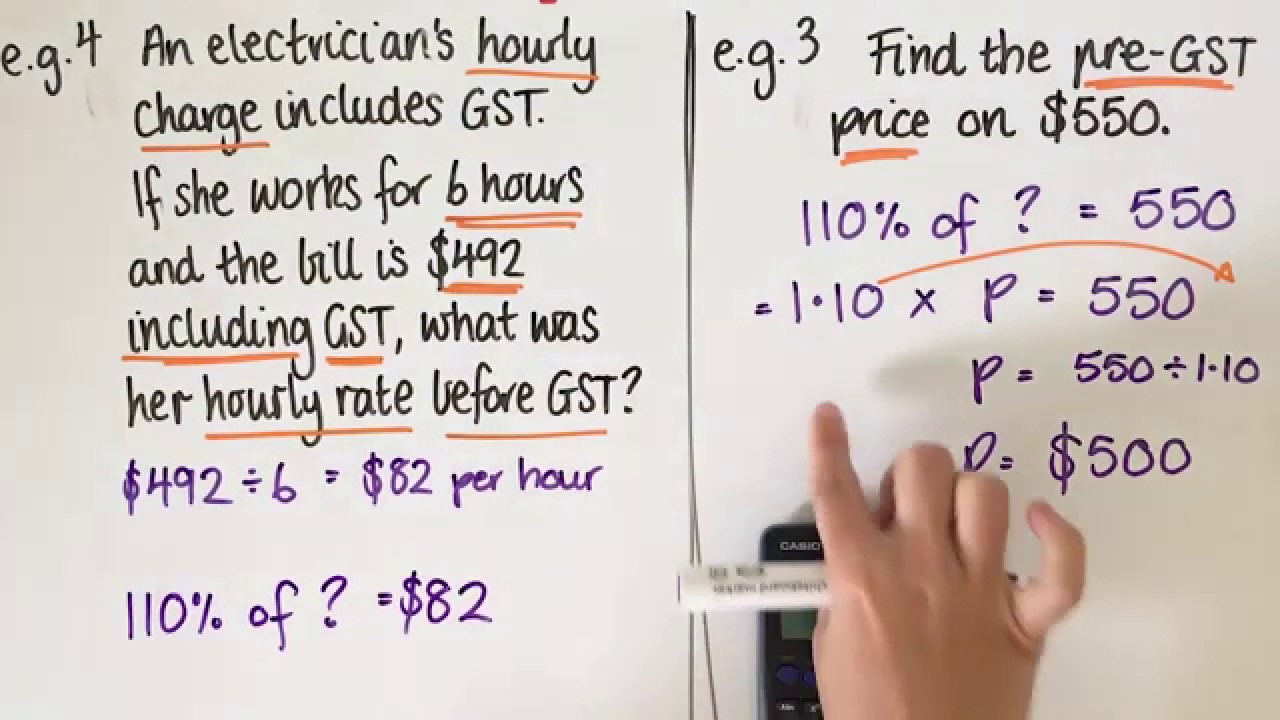 e.g.4 An electrician's hourly
charge includes GST.
If she works for 6 hours
and the bill is $492
including GST, what was
her hourly rate before GST?
$492 ÷ 6 = $82 per hour
110% of ? = $82
e.g.3 Find the pre-GST
price on $550.
110% of ? = 550
= 1·10 × P = 550
P = 550 ÷ 1·10
P = $500
CASIO